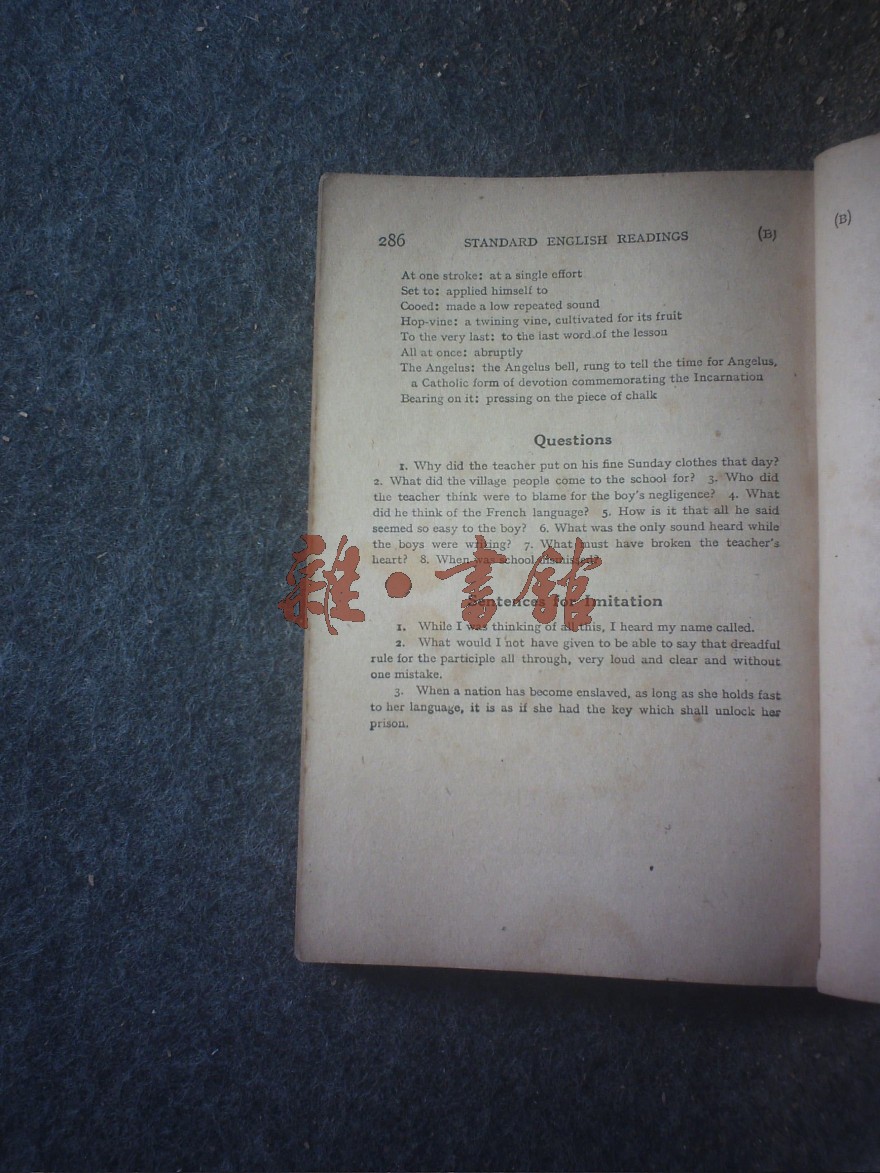 286 STANDARD ENGLISH READINGS (B)
At one stroke: at a single effort
Set to: applied himself to
Cooed: made a low repeated sound
Hop-vine: a twining vine, cultivated for its fruit
To the very last: to the last word of the lesson
All at once: abruptly
The Angelus: the Angelus bell, rung to tell the time for Angelus,
a Catholic form of devotion commemorating the Incarnation
Bearing on it: pressing on the piece of chalk
Questions
1. Why did the teacher put on his fine Sunday clothes that day?
2. What did the village people come to the school for? 3. Who did
the teacher think were to blame for the boy's negligence? 4. What
did he think of the French language? 5. How is it that all he said
seemed so easy to the boy? 6. What was the only sound heard while
the boys were writing? 7. What must have broken the teacher's
heart? 8. When was school dismissed?
Sentences for Imitation
1. While I was thinking of all this, I heard my name called.
2. What would I not have given to be able to say that dreadful
rule for the participle all through, very loud and clear and without
one mistake.
3. When a nation has become enslaved, as long as she holds fast
to her language, it is as if she had the key which shall unlock her
prison.
(B)
雜·書館